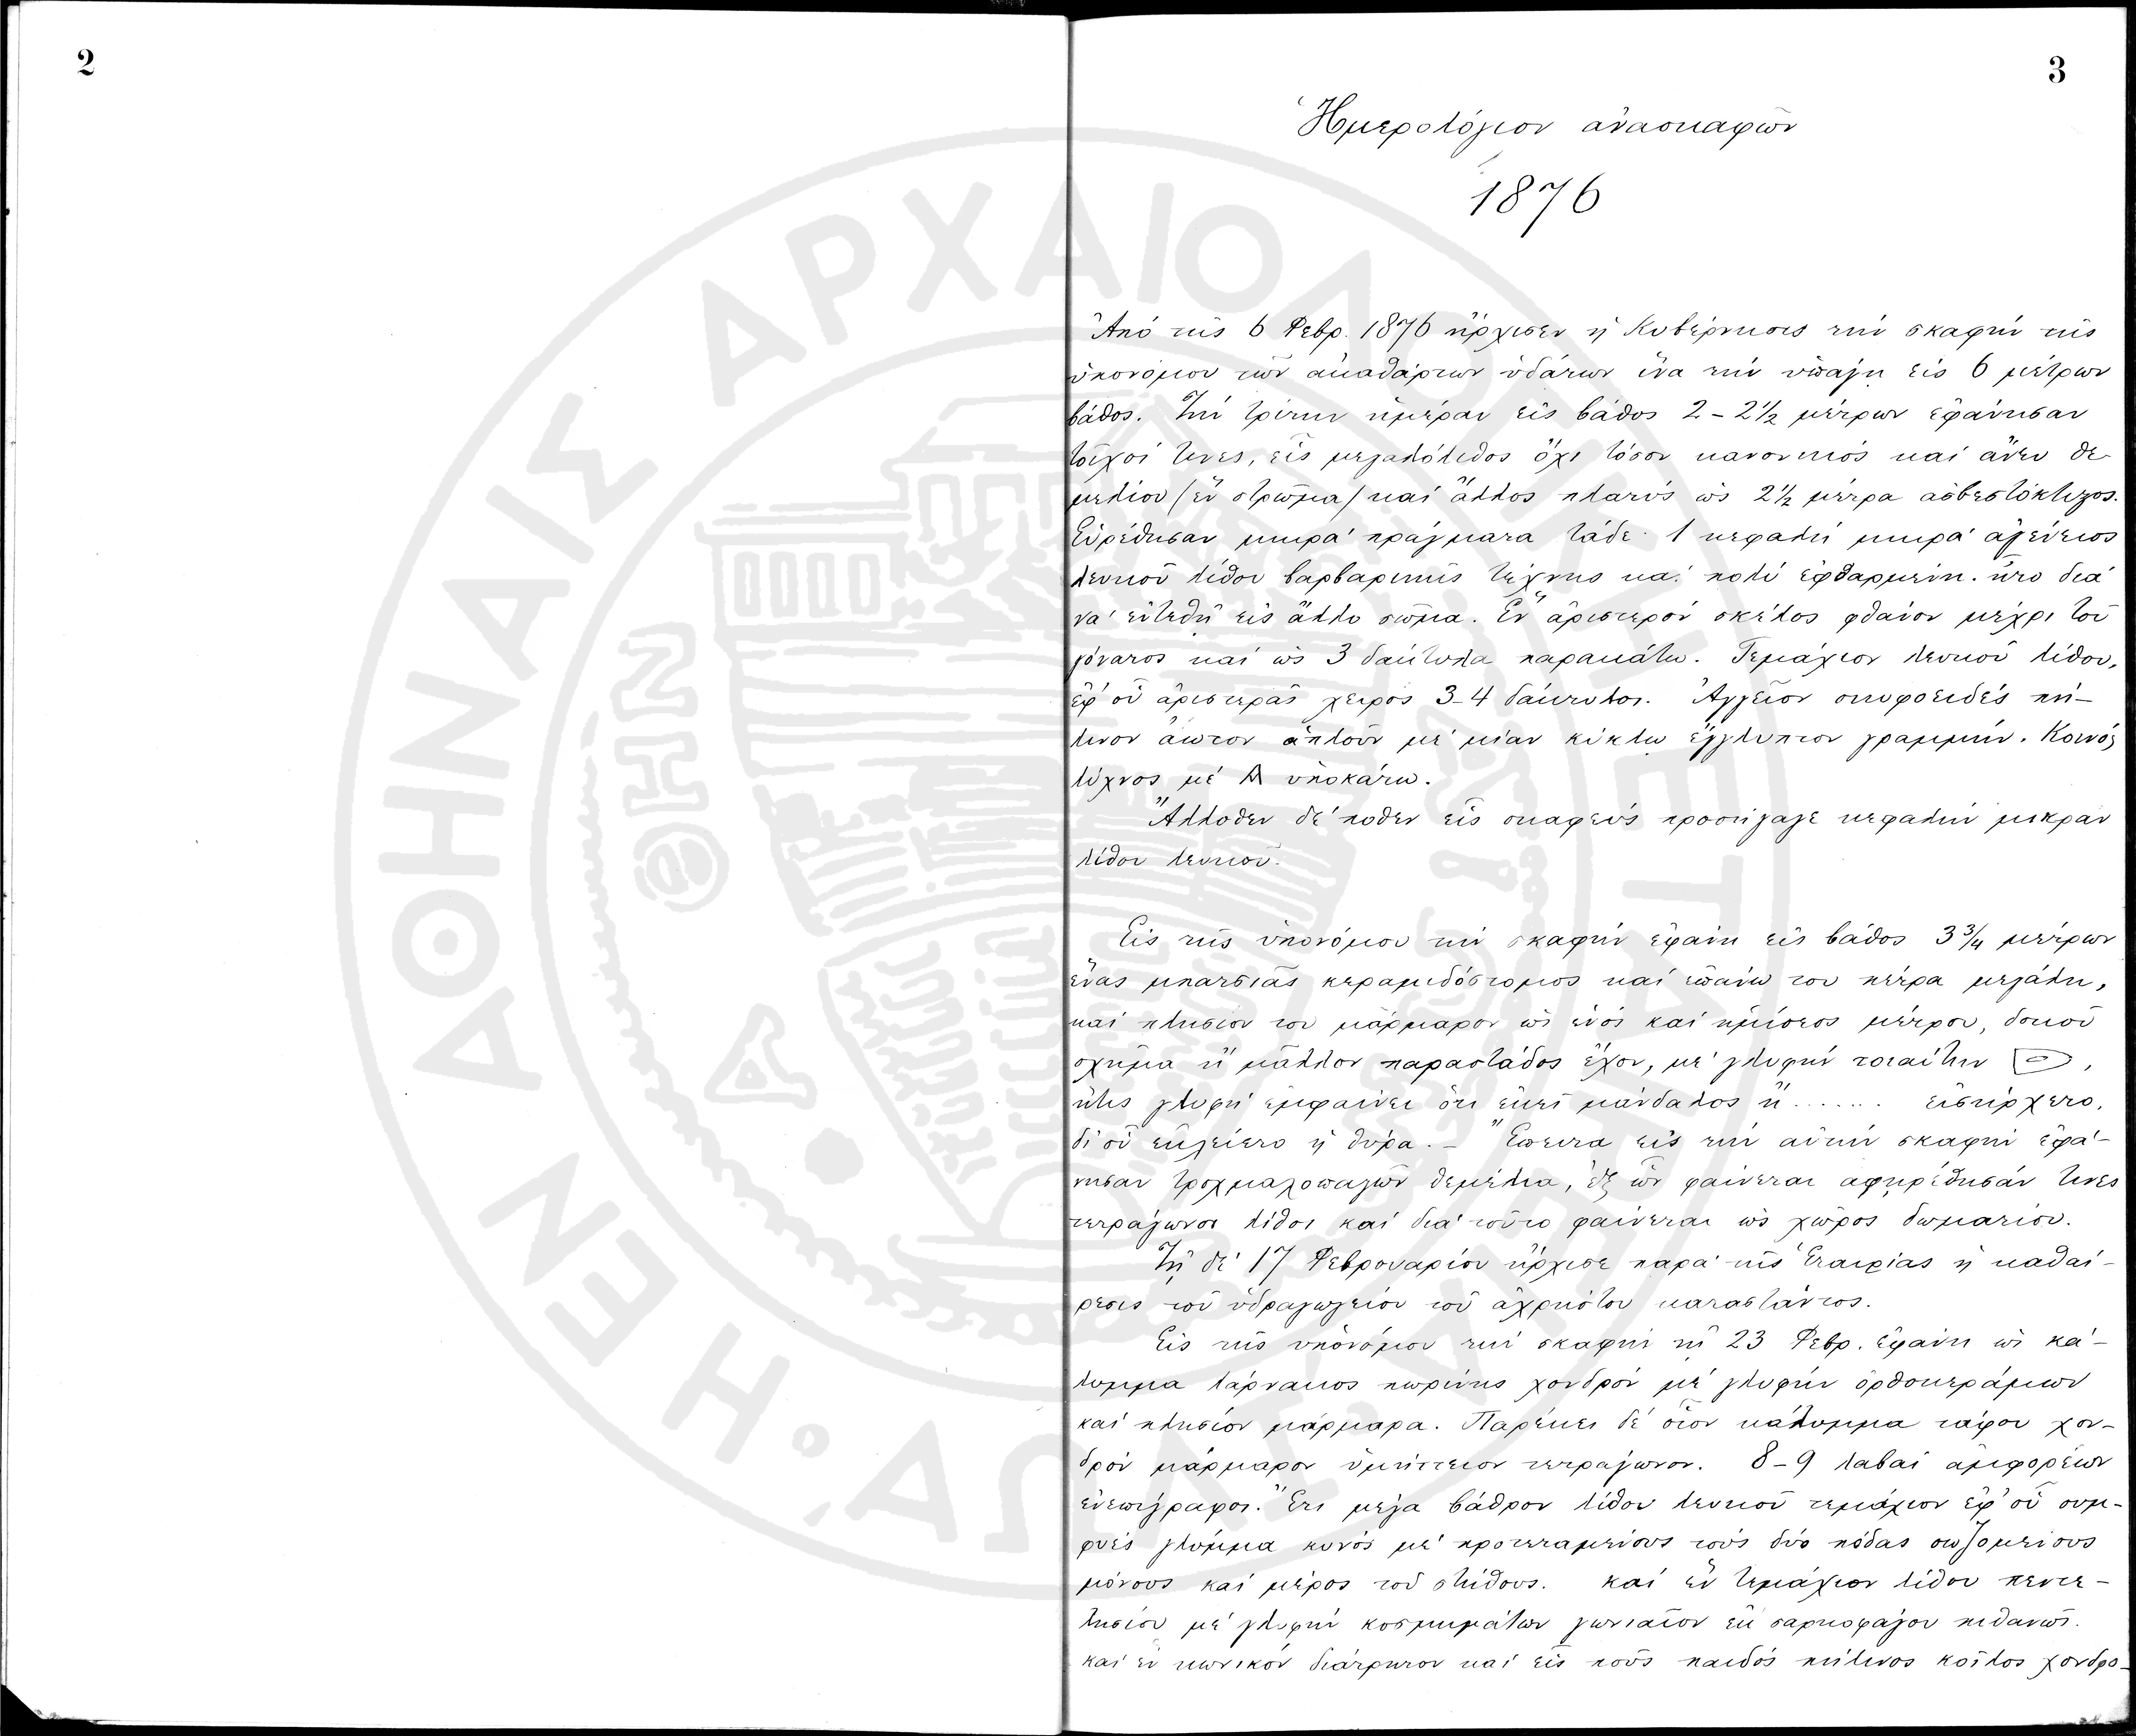 2
3
Ἡμερολόγιον ἀνασκαφῶν
1876
Ἀπὸ τῆς 6 Φεβρ. 1876 ἤρχισεν ἡ Κυβέρνησις τὴν σκαφὴν τῆς
ὑπονόμου τῶν ἀκαθάρτων ὑδάτων ἵνα τὴν ὑπάγῃ εἰς 6 μέτρων
βάθος. Τὴν τρίτην ἡμέραν εἰς βάθος 2 - 2½ μέτρων ἐφάνησαν
τοῖχοί τινες, εἷς μεγαλόλιθος ὄχι τόσον κανονικὸς καὶ ἄνευ θε-
μελίου (ἓν στρῶμα) καὶ ἄλλος πλατὺς ὡς 2½ μέτρα ἀσβεστόκτιστος.
Εὑρέθησαν μικρὰ πράγματα τάδε· 1 κεφαλὴ μικρὰ ἀγένειος
λευκοῦ λίθου βαρβαρικῆς τέχνης καὶ πολὺ ἐφθαρμένη. ἦτο διὰ
νὰ ἐντεθῇ εἰς ἄλλο σῶμα. Ἓν ἀριστερὸν σκέλος φθάνον μέχρι τοῦ
γόνατος καὶ ὡς 3 δάκτυλα παρακάτω. Τεμάχιον λευκοῦ λίθου,
ἐφ' οὗ ἀριστερᾶς χειρὸς 3-4 δάκτυλοι. Ἀγγεῖον σκυφοειδὲς πή-
λινον ἄωτον ἁπλοῦν μὲ μίαν κύκλῳ ἔγγλυπτον γραμμήν. Κοινὸς
λύχνος μὲ Α ὑποκάτω.
Ἄλλοθεν δέ ποθεν εἷς σκαφεὺς προσήγαγε κεφαλὴν μικρὰν
λίθου λευκοῦ.
Εἰς τῆς ὑπονόμου τὴν σκαφὴν ἐφάνη εἰς βάθος 3¾ μέτρων
ἕνας μπατσιᾶς κεραμιδόστομος καὶ ἐπάνω του πέτρα μεγάλη,
καὶ πλησίον του μάρμαρον ὡς ἑνὸς καὶ ἡμίσεος μέτρου, δοκοῦ
σχῆμα ἢ μᾶλλον παραστάδος ἔχον, μὲ γλυφὴν τοιαύτην,
ἥτις γλυφὴ ἐμφαίνει ὅτι ἐκεῖ μάνδαλος ἢ ...... εἰσήρχετο,
δι' οὗ ἐκλείετο ἡ θύρα. – Ἔπειτα εἰς τὴν αὐτὴν σκαφὴν ἐφά-
νησαν τροχμαλοπαγῶν θεμέλια, ἐξ ὧν φαίνεται ἀφῃρέθησάν τινες
τετράγωνοι λίθοι καὶ διὰ τοῦτο φαίνεται ὡς χῶρος δωματίου.
Τῇ δὲ 17 Φεβρουαρίου ἤρχισε παρὰ τῆς Ἑταιρίας ἡ καθαί-
ρεσις τοῦ ὑδραγωγείου τοῦ ἀχρήστου καταστάντος.
Εἰς τῆς ὑπονόμου τὴν σκαφὴν τῇ 23 Φεβρ. ἐφάνη ὡς κά-
λυμμα λάρνακος πωρίνης χονδρὸν μὲ γλυφὴν ὀρθοκεράμων
καὶ πλησίον μάρμαρα. Παρέκει δὲ οἷον κάλυμμα τάφου χον-
δρὸν μάρμαρον ὑμήττειον τετράγωνον. 8-9 λαβαὶ ἀμφορέων
ἐνεπίγραφοι. Ἔτι μέγα βάθρον λίθου λευκοῦ τεμάχιον ἐφ' οὗ συμ-
φυὲς γλύμμα κυνὸς μὲ προτεταμένους τοὺς δύο πόδας σωζομένους
μόνους καὶ μέρος τοῦ στήθους. καὶ ἓν τεμάχιον λίθου πεντε-
λησίου μὲ γλυφὴν κοσμημάτων γωνιαῖον ἐκ σαρκοφάγου πιθανῶς.
καὶ ἓν κωνικὸν διάτρητον καὶ εἷς ποῦς παιδὸς πήλινος κοῖλος χονδρο-